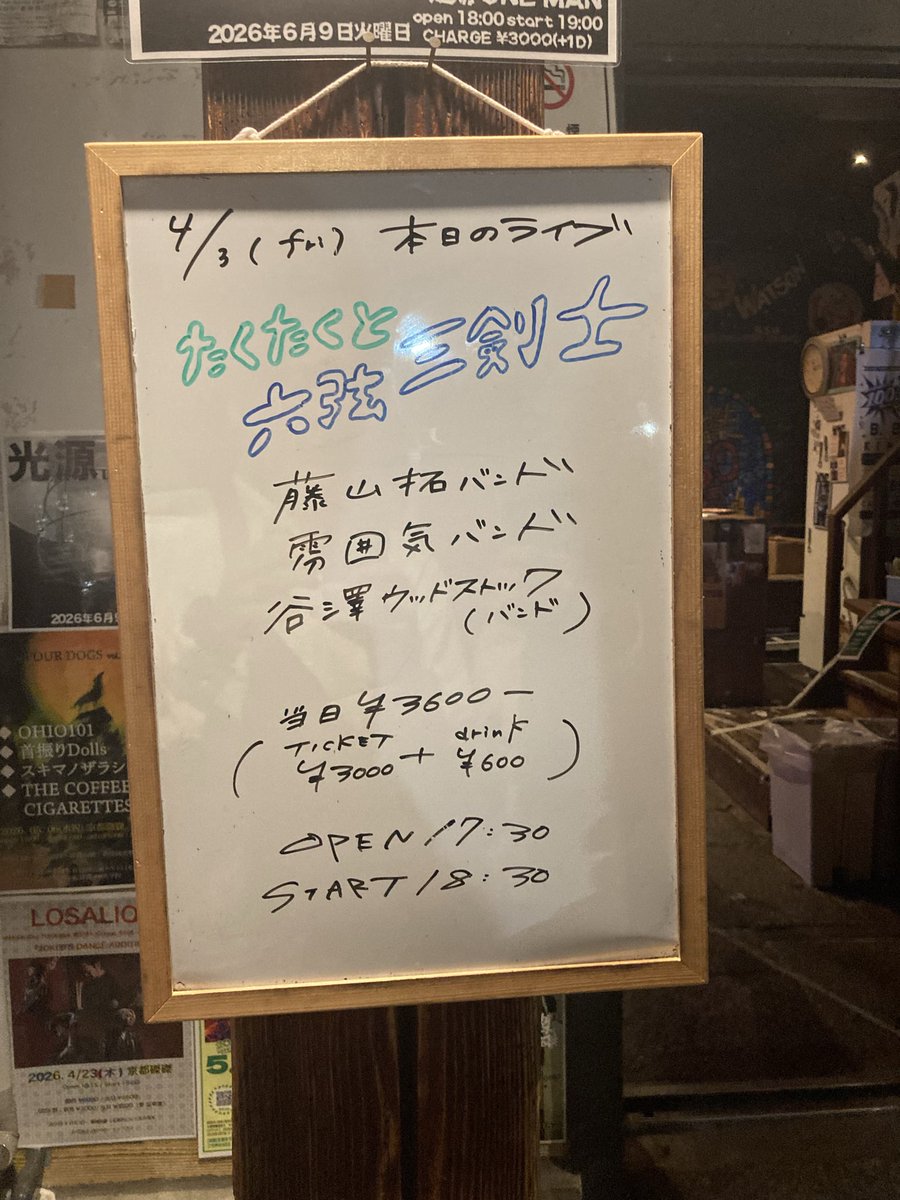 ONE MAN
open 18:00 start 19:00
2026年6月9日火曜日 CHARGE ¥3000(+1D)
4/3 (fri) 本日のライブ
たくたくと
六弦三剣士
藤山拓バンド
雰囲気バンド
谷澤ウッドストック
(バンド)
当日 ¥3600ー
(TICKET ¥3000 + drink ¥600)
OPEN / 17:30
START / 18:30
光源
2026年6月9
FOUR DOGS vol.
◆ OHIO101
◆ 首振りDolls
◆ スキマノザラシ
◆ THE COFFEE
CIGARETTES
LOSALIO
2026. 4/23(木) 京都磔磔
WATSON
100